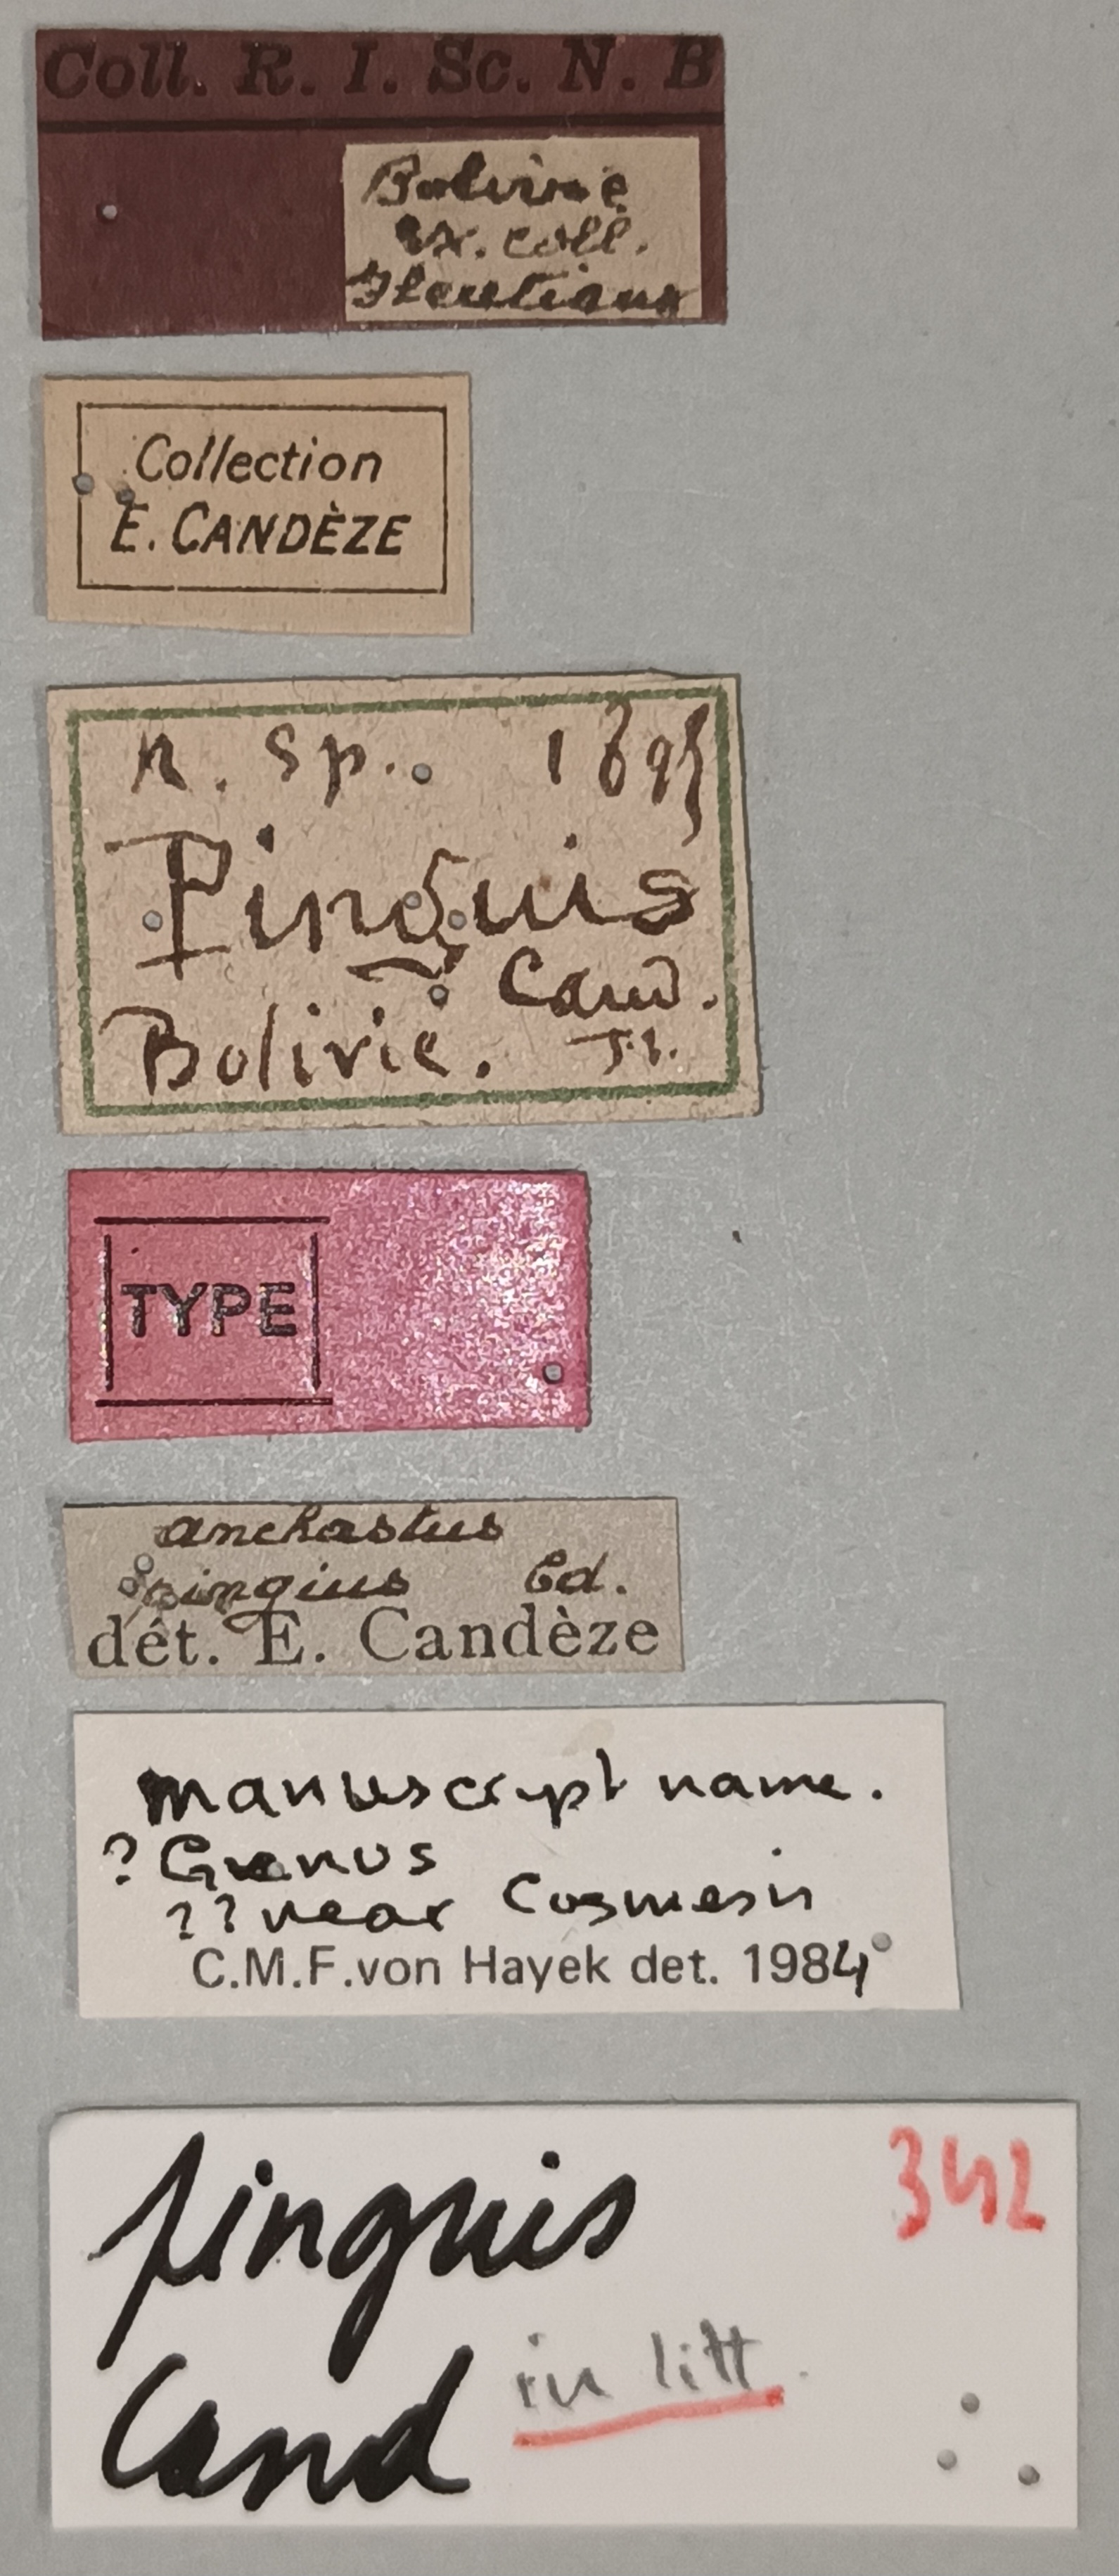 Coll. R. I. Sc. N. B
Bolivie
ex. coll.
Collection
E. CANDÈZE
n. sp.
Pinguis
Cand.
Bolivie.
TYPE
anchastus
pingius Cd.
dét. E. Candèze
manuscript name.
? Genus
?? near Cosmesis
C.M.F.von Hayek det. 1984
pinguis 342
Cand in litt.